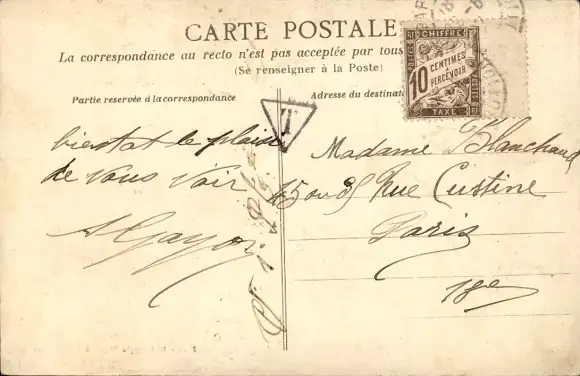 CARTE POSTALE
La correspondance au recto n'est pas acceptée par tous
(Se renseigner à la Poste)
Partie reservée à la correspondance
Adresse du destinat
CHIFFRE
10 CENTIMES
A PERCEVOIR
TAXE
T
bientot le plaisir
de vous voir
Madame Blanchard
Rue Custine
Paris
18e